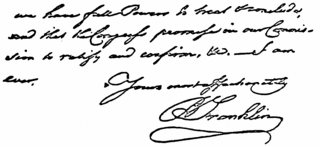 we have full Powers to treat & conclude,
and that the Congress promise in our Commis-
sion to ratify and confirm, &c. — I am
ever.
Yours most affectionately
B Franklin